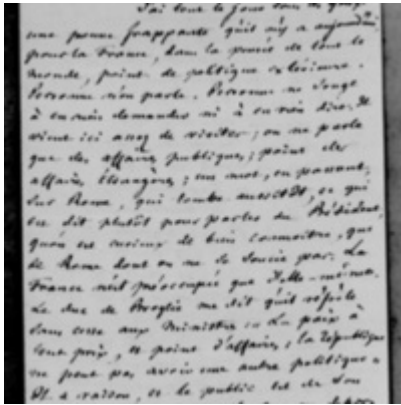 J'ai tous les jours sous les yeux
une preuve frappante qu'il n'y a aujourd'hui
pour la France, dans la pensée de tout le
monde, point de politique extérieure.
Personne n'en parle. Personne ne songe
à en rien demander ni à en rien dire. Il
vient ici assez de visites ; on ne parle
que des affaires publiques ; point des
affaires étrangères ; un mot, en passant,
sur Rome, qui tombe aussitôt, ce qui
est dit plutôt pour parler du Président,
qu'on est curieux de bien connoitre, que
de Rome dont on ne se soucie pas. La
France n'est préoccupée que d'elle-même.
Le duc de Broglie me dit qu'il répète
sans cesse aux Ministres : « La paix à
tout prix, et point d'affaires ; la République
ne peut pas avoir une autre politique »
Il a raison, et le public est de son